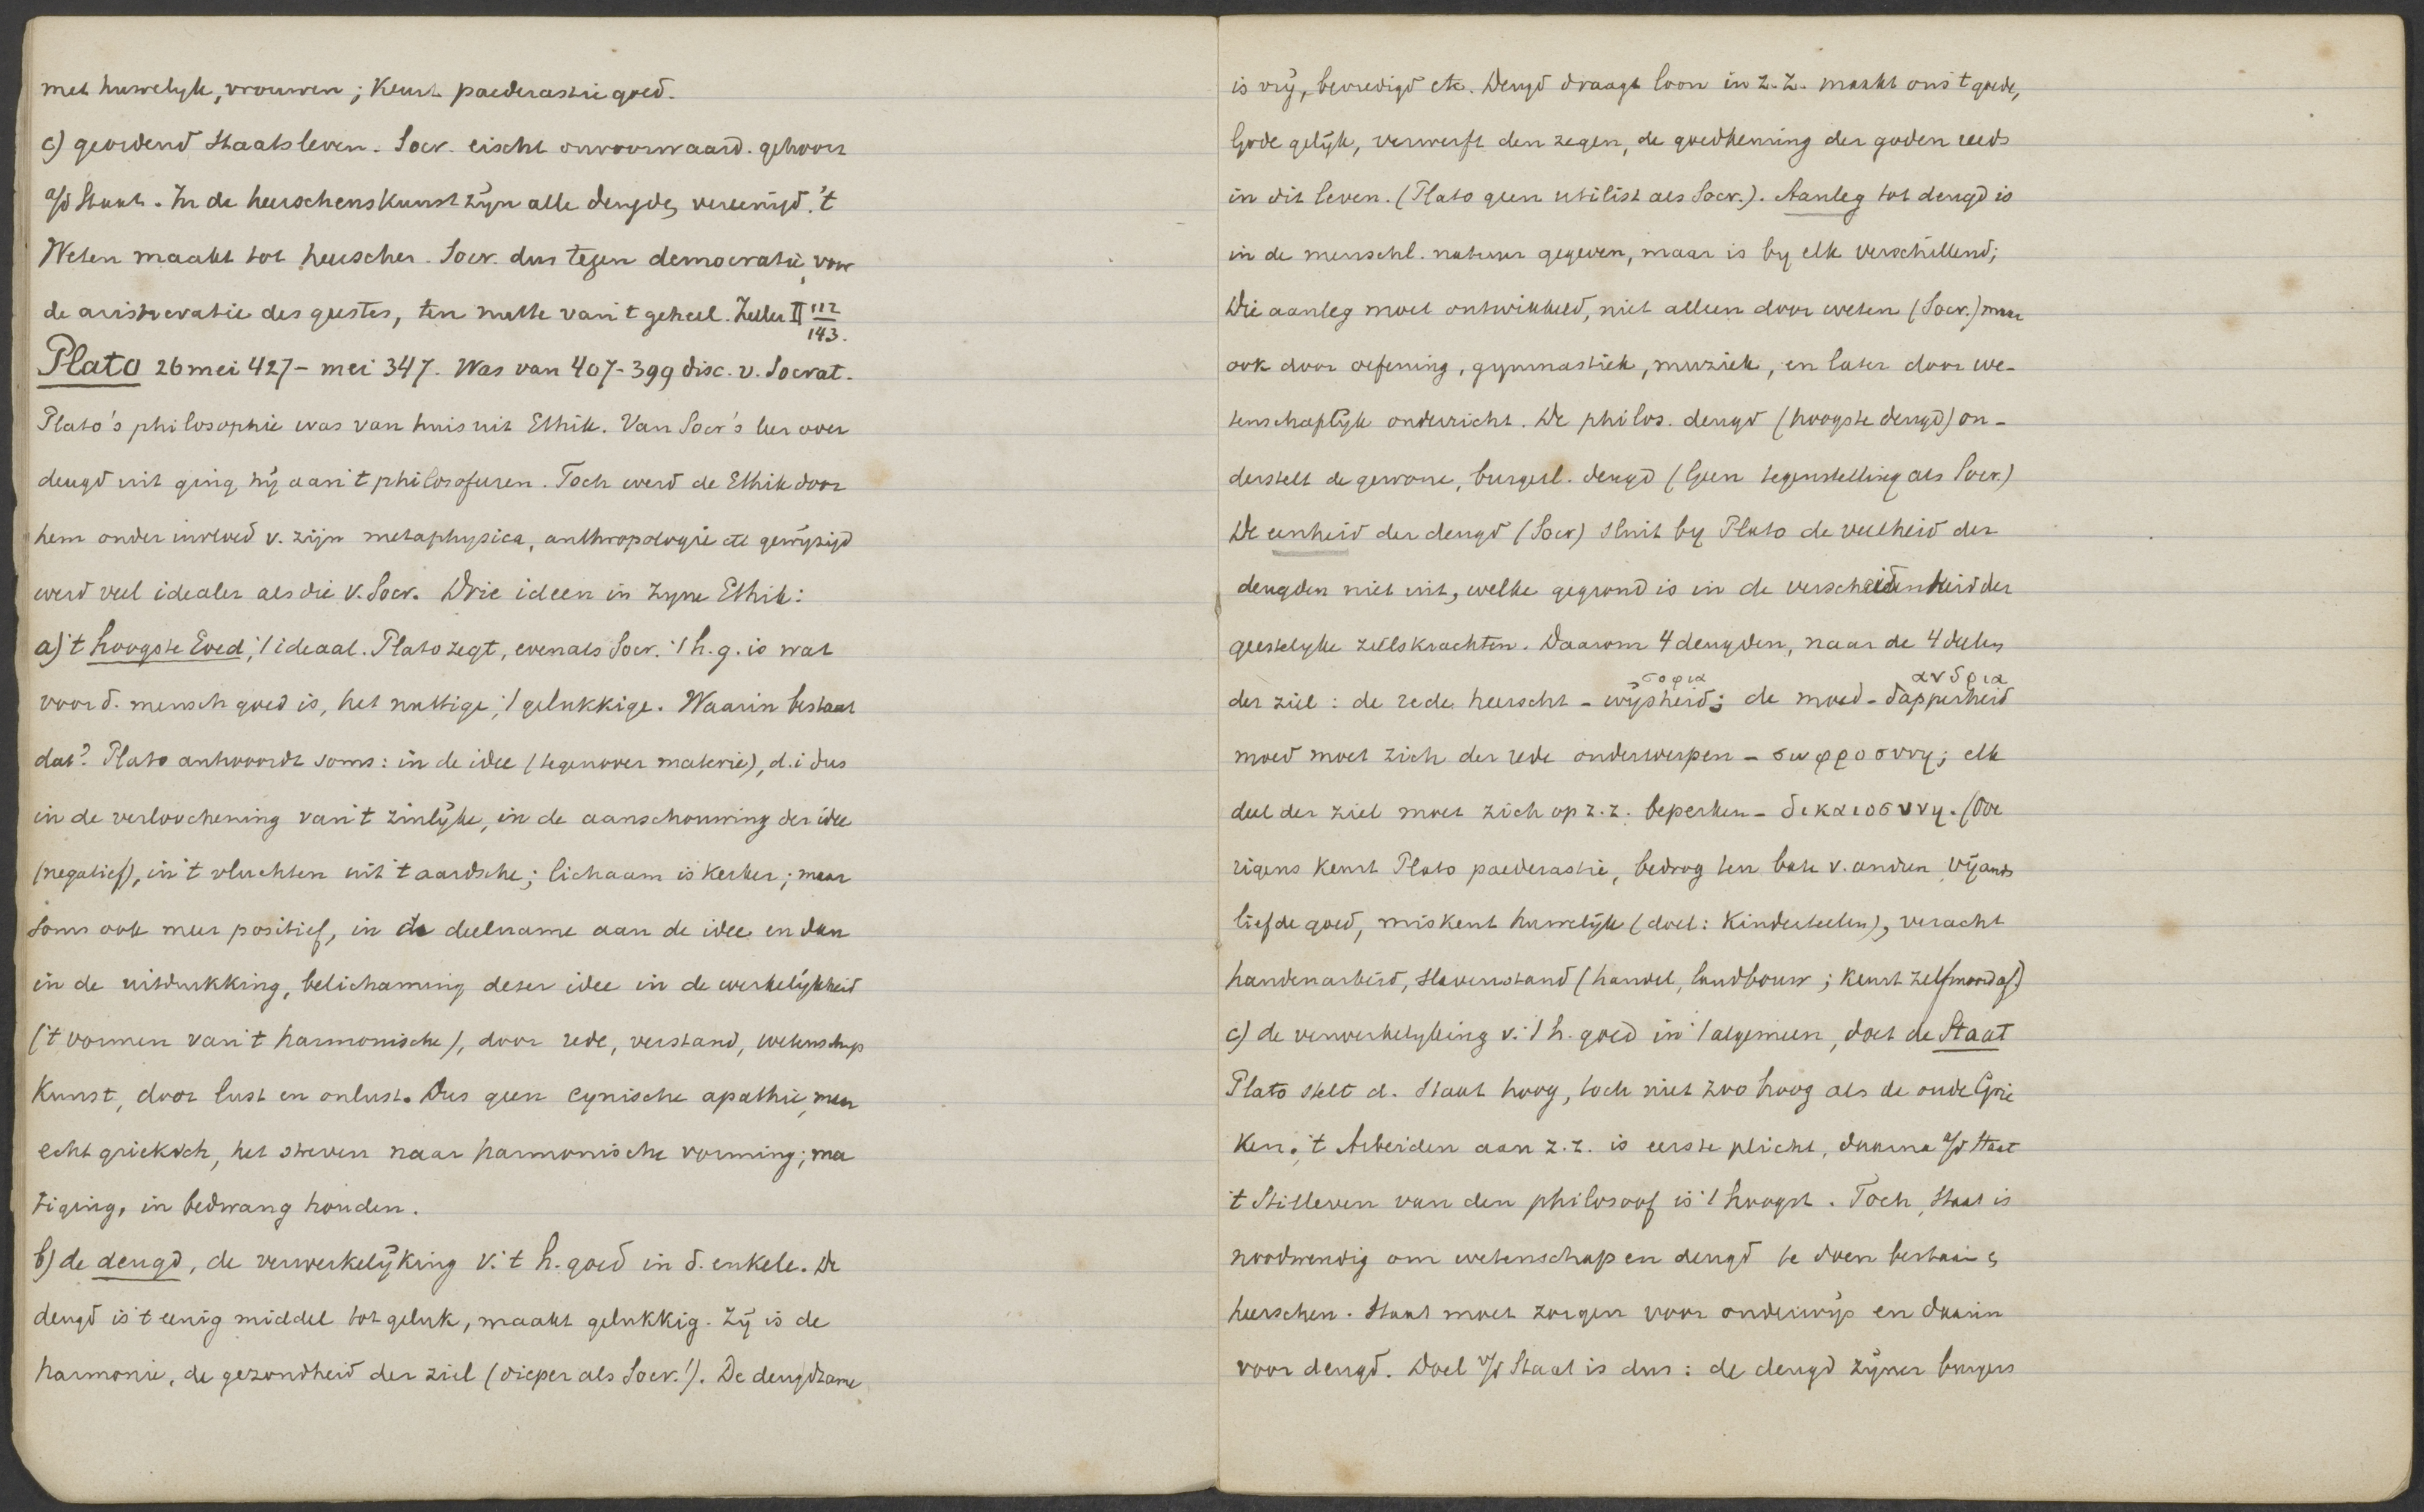 met huwelyk, vrouwen; Keurt paederastie goed.
c) geordend Staatsleven. Socr. eischt onvoorwaard. gehoorz
a/d Staat. In de heerschenskunst zijn alle deugde, vereenigd. 't
Weten maakt tot heerscher. Socr. dus tegen democratie, voor
de aristocratie des geestes, ten nutte van 't geheel. Zeller II 112
143.
Plato 26 mei 427 - mei 347. Was van 407-399 disc. v. Socrat.
Plato's philosophie was van huis uit Ethik. Van Socr's leer over
deugd uit ging hij aan 't philosofeeren. Toch werd de Ethik door
hem onder invloed v. zijn metaphysica, anthropologie etc gewijzigd
werd veel idealer als die v. Socr. Drie ideen in zyne Ethik:
a) 't hoogste Goed, 't ideaal. Plato zegt, evenals Socr. 't h.g. is wat
voor d. mensch goed is, het nuttige, 't gelukkige. Waarin bestaat
dat? Plato antwoordt soms: in de idee (tegenover materie), d.i dus
in de verloochening van 't zinlijke, in de aanschouwing der idee
(negatief), in 't vluchten uit 't aardsche; lichaam is Kerker; maar
soms ook meer positief, in de deelname aan de idee en dan
in de uitdrukking, belichaming dezer idee in de werkelijkheid
('t vormen van 't harmonische), door rede, verstand, wetenschap
Kunst, door lust en onlust. Dus geen cynische apathie, maar
echt grieksch, het streven naar harmonische vorming; ma
tiging, in bedwang houden.
b) de deugd, de verwerkelijking v. 't h. goed in d. enkele. De
deugd is 't eenig middel tot geluk, maakt gelukkig. Zij is de
harmonie, de gezondheid der ziel (dieper als Socr.!). De deugdzame
is vrij, bevredigd etc. Deugd draagt loon in z.z. maakt ons 't goede,
Gode gelijk, verwerft den zegen, de goedkeuring der goden reeds
in dit leven. (Plato geen utilist als Socr.). Aanleg tot deugd is
in de menschl. natuur gegeven, maar is by elk verschillend;
Die aanleg moet ontwikkeld, niet alleen door weten (Socr.) maar
ook door oefening, gymnastiek, muziek, en later door we-
tenschaplijk onderricht. De philos. deugd (hoogste deugd) on-
derstelt de gewone, burgerl. deugd (Geen tegenstelling als Socr.)
De eenheid der deugd (Socr) sluit by Plato de veelheid der
deugden niet uit, welke gegrond is in de verscheidenheid der
geestelyke zielskrachten. Daarom 4 deugden, naar de 4 deelen
der ziel: de rede heerscht - wijsheid, σοφια; de moed - dapperheid ανδρια
moed moet zich der rede onderwerpen - σωφροσυνη; elk
deel der ziel moet zich op z.z. beperken - δικαιοσυνη. (Ove
rigens keurt Plato paederastie, bedrog ten bate v. anderen, vijands
liefde goed, miskent huwelijk (doel: Kinderteelen), veracht
handenarbeid, slavenstand (handel, landbouw; keurt zelfmoord af.)
c) de verwerkelyking v. 't h. goed in 't algemeen, doet de Staat
Plato stelt d. Staat hoog, toch niet zoo hoog als de oude Grie
ken. 't Arbeiden aan z.z. is eerste plicht, daarna a/d Staat
't Stilleven van den philosoof is 't hoogst. Toch, Staat is
noodwendig om wetenschap en deugd te doen bestaan &
heerschen. Staat moet zorgen voor onderwijs en daarin
voor deugd. Doel v/d Staat is dus: de deugd zijner burgers